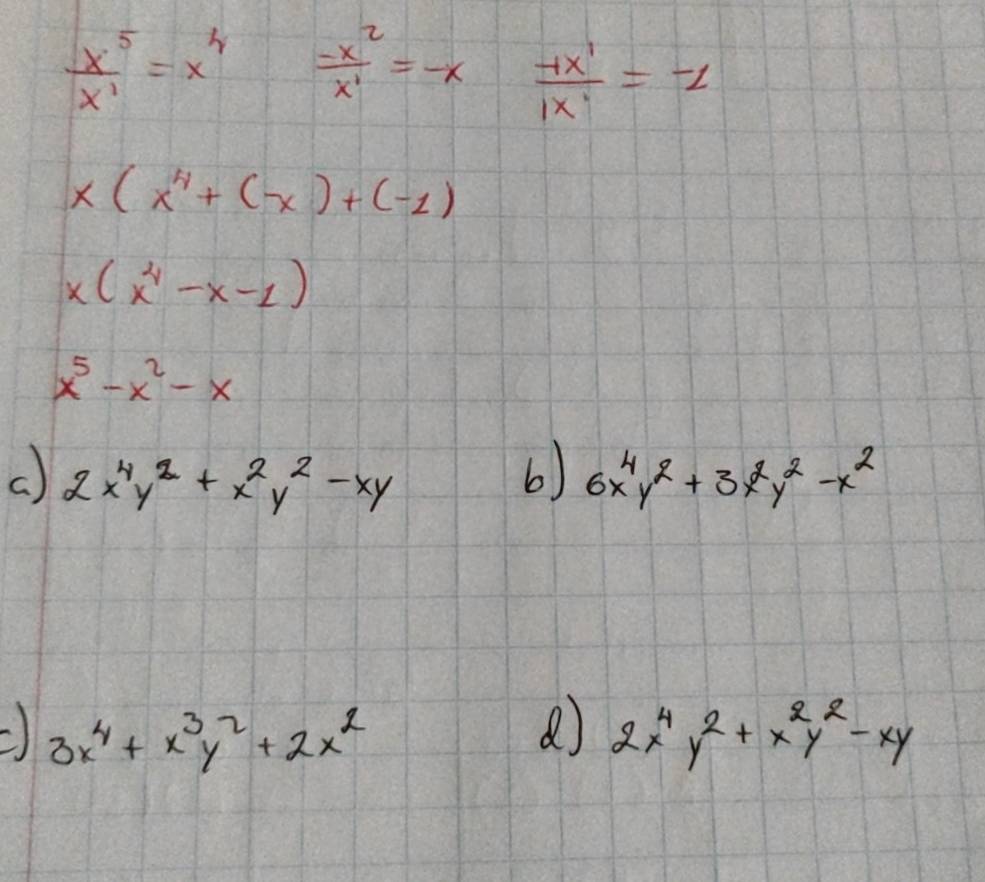 x⁵/x¹ = x⁴   -x²/x¹ = -x   -1x¹/1x¹ = -1
x ( x⁴ + (-x ) + (-1)
x ( x⁴ - x - 1 )
x⁵ - x² - x
a) 2x⁴y² + x²y² - xy   b) 6x⁴y² + 3x²y² - x²
c) 3x⁴ + x³y² + 2x²   d) 2x⁴y² + x²y² - xy